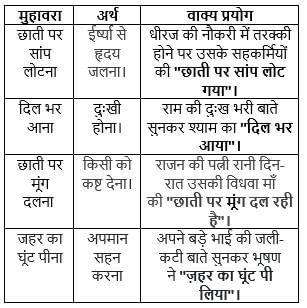 मुहावरा अर्थ वाक्य प्रयोग
छाती पर सांप लोटना
ईर्ष्या से हृदय जलना।
धीरज की नौकरी में तरक्की
होने पर उसके सहकर्मियों
की "छाती पर सांप लोट
गया"।
दिल भर आना
दुःखी होना।
राम की दुःख भरी बाते
सुनकर श्याम का "दिल भर
आया"।
छाती पर मूंग दलना
किसी को कष्ट देना।
राजन की पत्नी रानी दिन-
रात उसकी विधवा माँ
की "छाती पर मूंग दल रही
है"।
जहर का घूंट पीना
अपमान सहन करना
अपने बड़े भाई की जली-
कटी बाते सुनकर भूषण
ने "ज़हर का घूंट पी
लिया"।